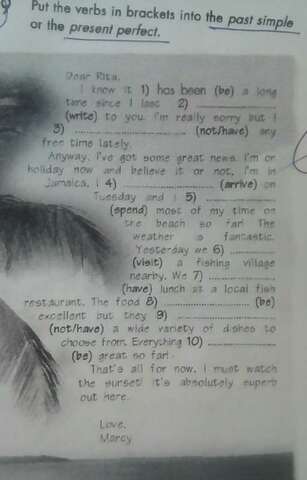 Put the verbs in brackets into the past simple
or the present perfect.
Dear Rita,
I know it 1) has been (be) a long
time since I last 2) ....................
(write) to you. I'm really sorry but I
3) .............................. (not/have) any
free time lately.
Anyway, I've got some great news. I'm on
holiday now and believe it or not, I'm in
Jamaica. I 4) .................... (arrive) on
Tuesday and I 5) ....................
(spend) most of my time on
the beach so far! The
weather is fantastic.
Yesterday we 6) ....................
(visit) a fishing village
nearby. We 7) ....................
(have) lunch at a local fish
restaurant. The food 8) .................... (be)
excellent but they 9) ....................
(not/have) a wide variety of dishes to
choose from. Everything 10) ....................
(be) great so far!
That's all for now. I must watch
the sunset! It's absolutely superb
out here.
Love,
Marcy